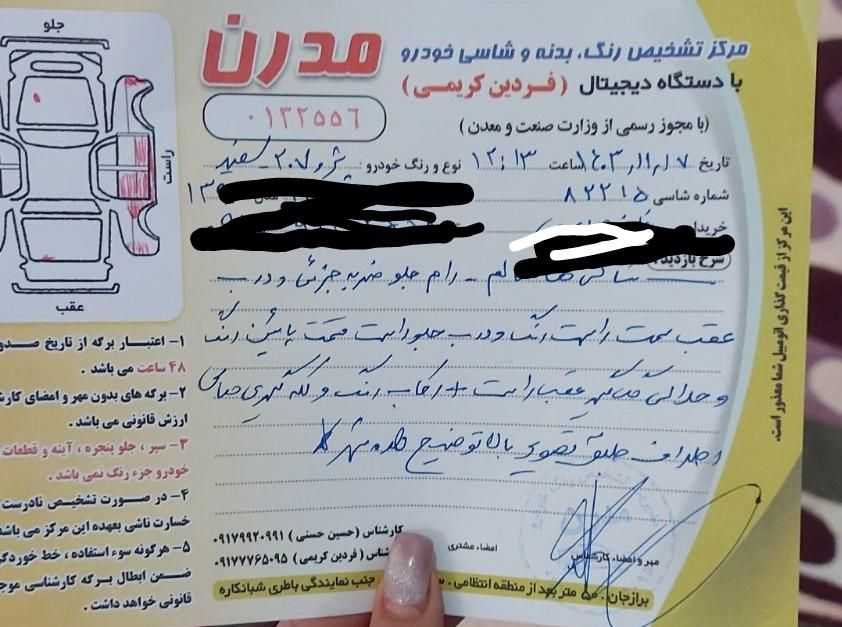 جلو
راست
عقب
مدرن
مرکز تشخیص رنگ، بدنه و شاسی خودرو
با دستگاه دیجیتال (فردین کریمی)
(با مجوز رسمی از وزارت صنعت و معدن)
۰۱۳۲۵۵۶
تاریخ ۱۴۰۳,۱۱,۱۷ ساعت ۱۲:۱۳ نوع و رنگ خودرو: پژو ۲۰۷ - سفید
شماره شاسی ۸۲۲۱۵ ۱۳
خریدار
شرح بازدید:
سالم - رام جلو ضربه جزئی و درب
عقب سمت راست رنگ و درب جلو راست قسمت پائین رنگ
و گلگیر عقب راست + رکاب رنگ و لکه گیری
اطراف طبق تصویر بالا توضیح داده شد
۱- اعتبار برگه از تاریخ صدو
۴۸ ساعت می باشد.
۲- برگه های بدون مهر و امضای کارش
ارزش قانونی می باشد.
۳- سپر، جلو پنجره، آینه و قطعات
خودرو جزء رنگ نمی باشد.
۴- در صورت تشخیص نادرست
خسارت ناشی بعهده این مرکز می باشد
۵- هرگونه سوء استفاده، خط خوردگی
ضمن ابطال برگه کارشناسی موج
قانونی خواهد داشت.
کارشناس (حسین حسنی) ۰۹۱۷۹۹۲۰۹۹۱
شناس (فردین کریمی) ۰۹۱۷۷۷۶۵۰۹۵
امضاء مشتری
مهر و امضاء کارشناس
برازجان. ۵۰ متر بعد از منطقه انتظامی. جنب نمایندگی باطری شبانکاره
این مرکز از قیمت گذاری اتومبیل شما معذور است.